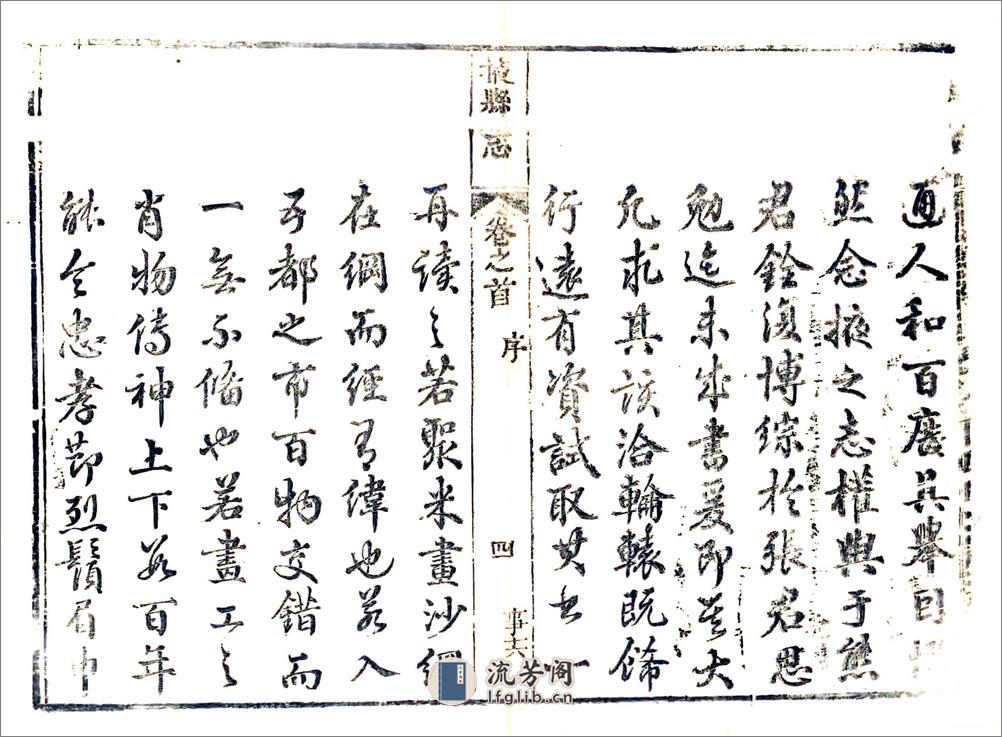 通人和百廢具舉目擊
然念掖之志權輿于熊
君銓復博綜於張君思
勉迄未成書爰即其大
凡求其該洽輪轅既飾
行遠有資試取其書一
掖縣志
卷之首
序
四
再讀之若聚米畫沙綱
在綱而經有緯也若入
五都之市百物交錯而
一無不備也若畫工之
肖物傳神上下若百年
能令忠孝節烈鬚眉巾
流芳阁
lfglib.cn